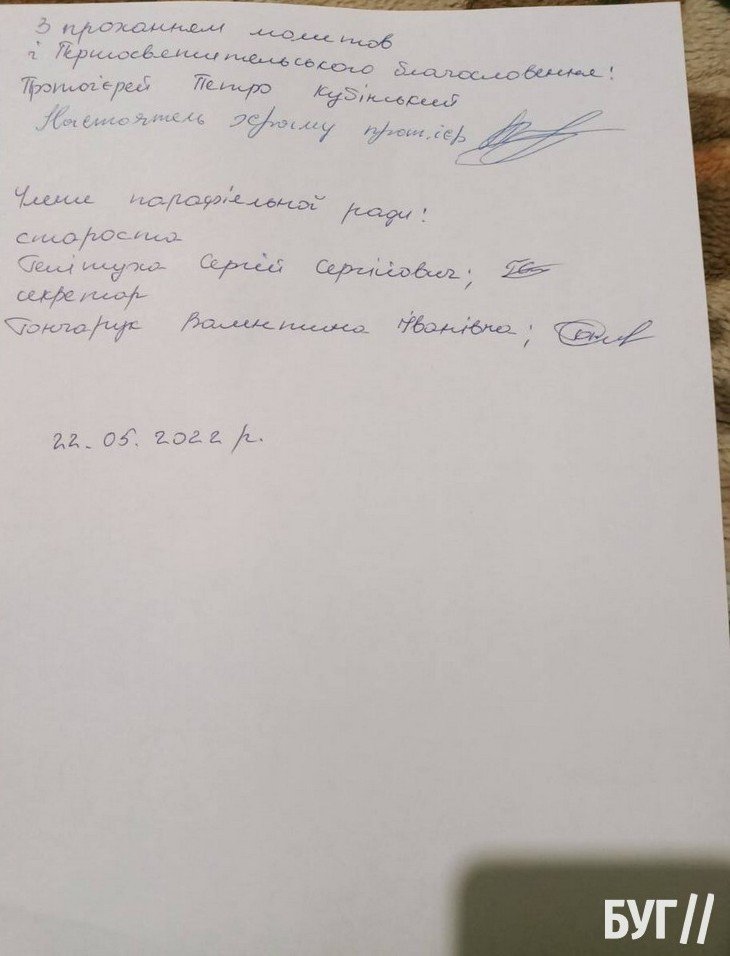 З проханням молитов
і Першосвятительського благословення!
Протоієрей Петро Кубінський
Настоятель храму прот.ієр
Члени парафіяльної ради:
староста
Гепітуха Сергій Сергійович;
секретар
Гончарук Валентина Іванівна;
22.05.2022 р.
БУГ//